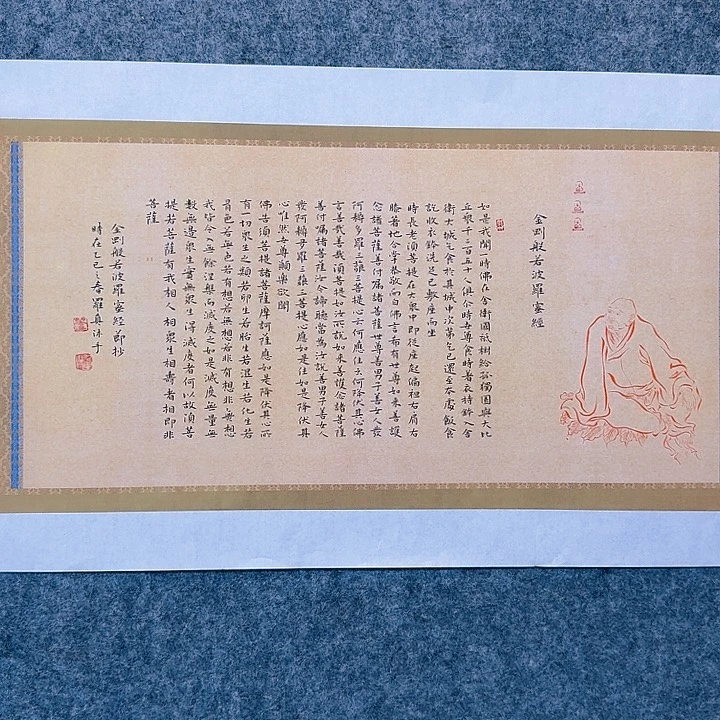 金剛般若波羅蜜經
如是我聞一時佛在舍衛國祇樹給孤獨園與大比
丘眾千二百五十人俱尒時世尊食時著衣持鉢入舍
衛大城乞食於其城中次第乞已還至本處飯食
訖收衣鉢洗足已敷座而坐
時長老須菩提在大眾中即從座起偏袒右肩右
膝著地合掌恭敬而白佛言希有世尊如来善護
念諸菩薩善付嘱諸菩薩世尊善男子善女人發
阿耨多羅三藐三菩提心云何應住云何降伏其心佛
言善哉善哉須菩提如汝所說如来善護念諸菩薩
善付嘱諸菩薩汝今諦聽當為汝說善男子善女人
發阿耨多羅三藐三菩提心應如是住如是降伏其
心唯然世尊願樂欲聞
佛告須菩提諸菩薩摩訶薩應如是降伏其心所
有一切眾生之類若卵生若胎生若濕生若化生若
有色若無色若有想若無想若非有想非無想
我皆令入無餘涅槃而滅度之如是滅度無量無
數無邊眾生實無眾生得滅度者何以故須菩
提若菩薩有我相人相眾生相壽者相即非
菩薩
金剛般若波羅蜜經節抄
時在乙巳之春羅真沐手